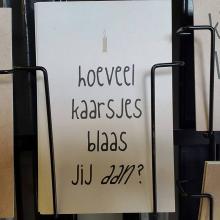 hoeveel
kaarsjes
blaas
jij aan?